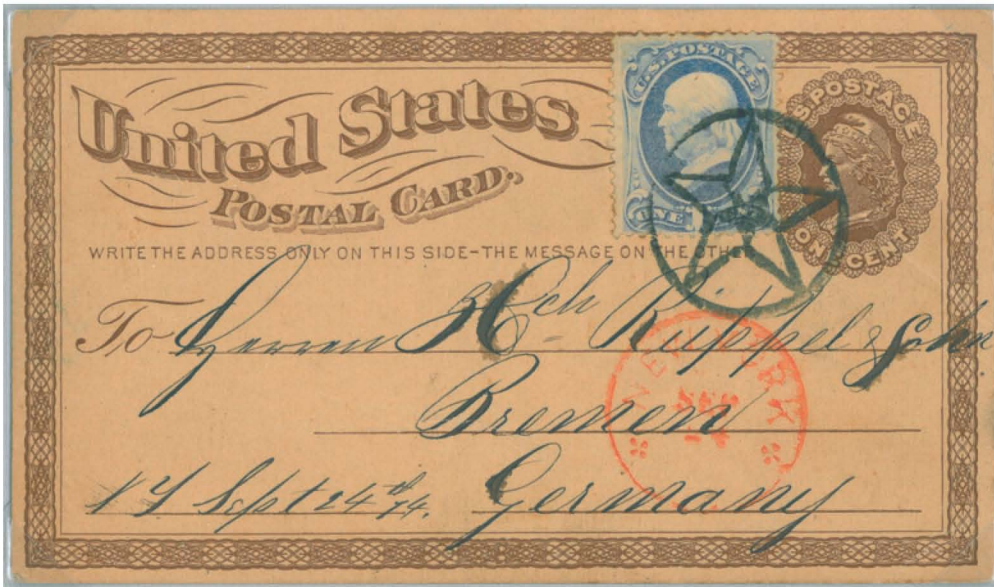 United States
POSTAL CARD.
U.S. POSTAGE
ONE
U.S. POSTAGE
ONE CENT
WRITE THE ADDRESS ONLY ON THIS SIDE-THE MESSAGE ON THE OTHER
To Herren Hch Ruppel & Sohn
NEW YORK
SEP
24
Bremen
N Y Sept 24th 74. Germany